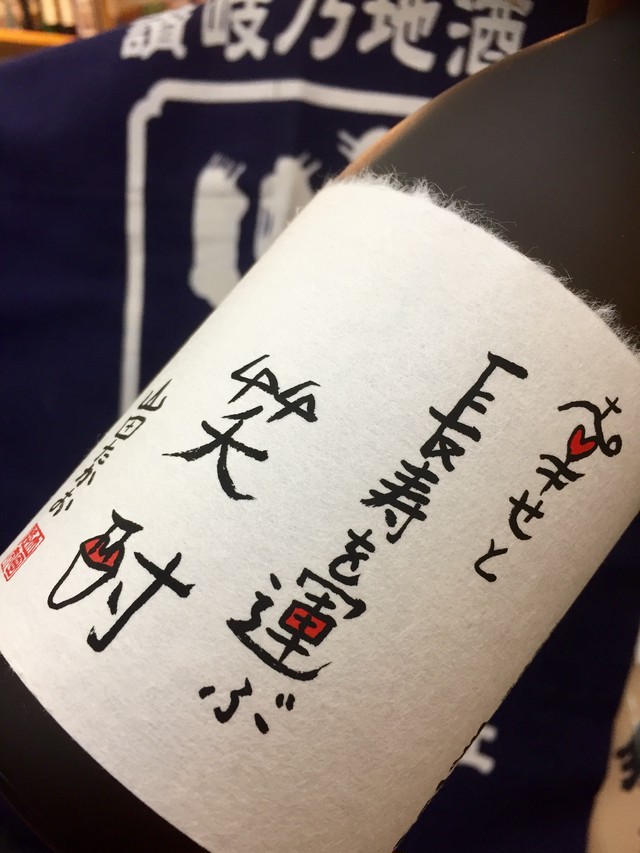 讃岐乃地酒
せと
長寿を運ぶ
笑酎
山田たかお